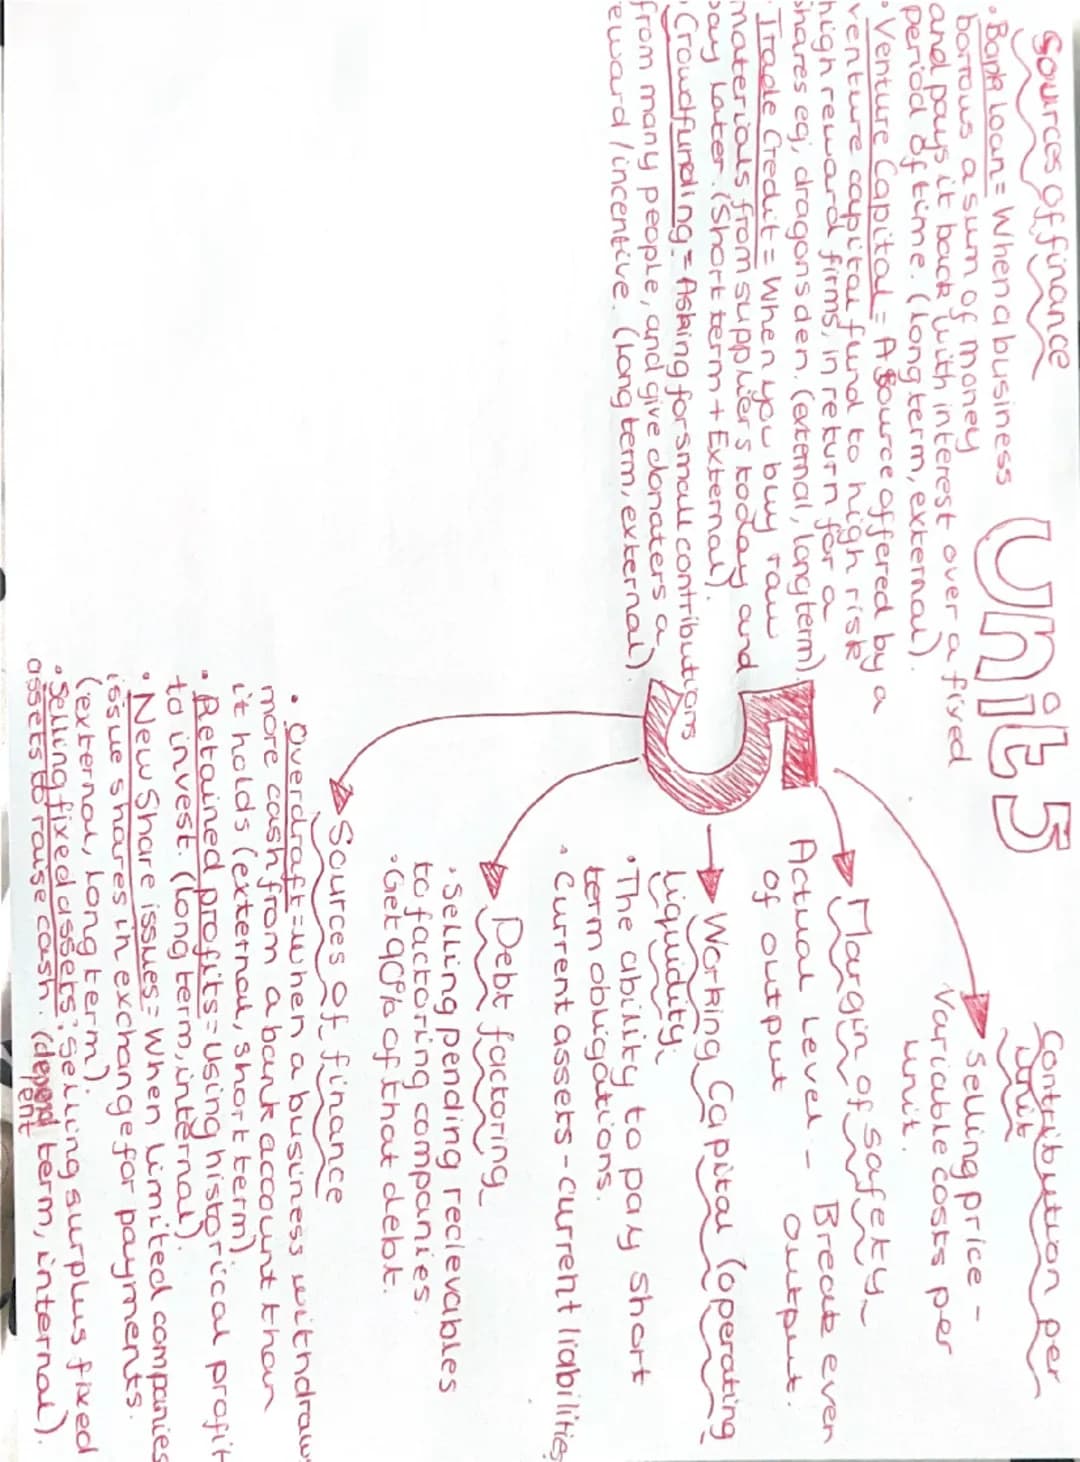 Unit 5
Sources of finance
• Bank Loan = When a business
borrows a sum of money
and pays it back with interest over a fixed
period of time. (Long term, external).
• Venture Capital = A source offered by a
venture capital fund to high risk
high reward firms, in return for a
shares eg, dragons den. (external, long term)
Trade Credit = When you buy raw
materials from suppliers today and
pay later. (Short term + External).
Crowdfunding = Asking for small contributions
from many people, and give donaters a
reward / incentive. (Long term, external).
5
Contribution per
unit
Selling price -
Variable costs per
unit.
Margin of safety
Actual Level - Break even
of output output.
Working Capital (operating
liquidity.
• The ability to pay short
term obligations.
• Current assets - current liabilities
Debt factoring
• Selling pending recievables
to factoring companies.
• Get 90% of that debt.
Sources of finance
• Overdraft = when a business withdraw
more cash from a bank account than
it holds (external, short term)
• Retained profits = using historical profit
to invest. (long term, internal).
• New Share issues = When limited companies
issue shares in exchange for payments.
(external, long term)
• Selling fixed assets: selling surplus fixed
assets to raise cash. (depend term, internal).
ent